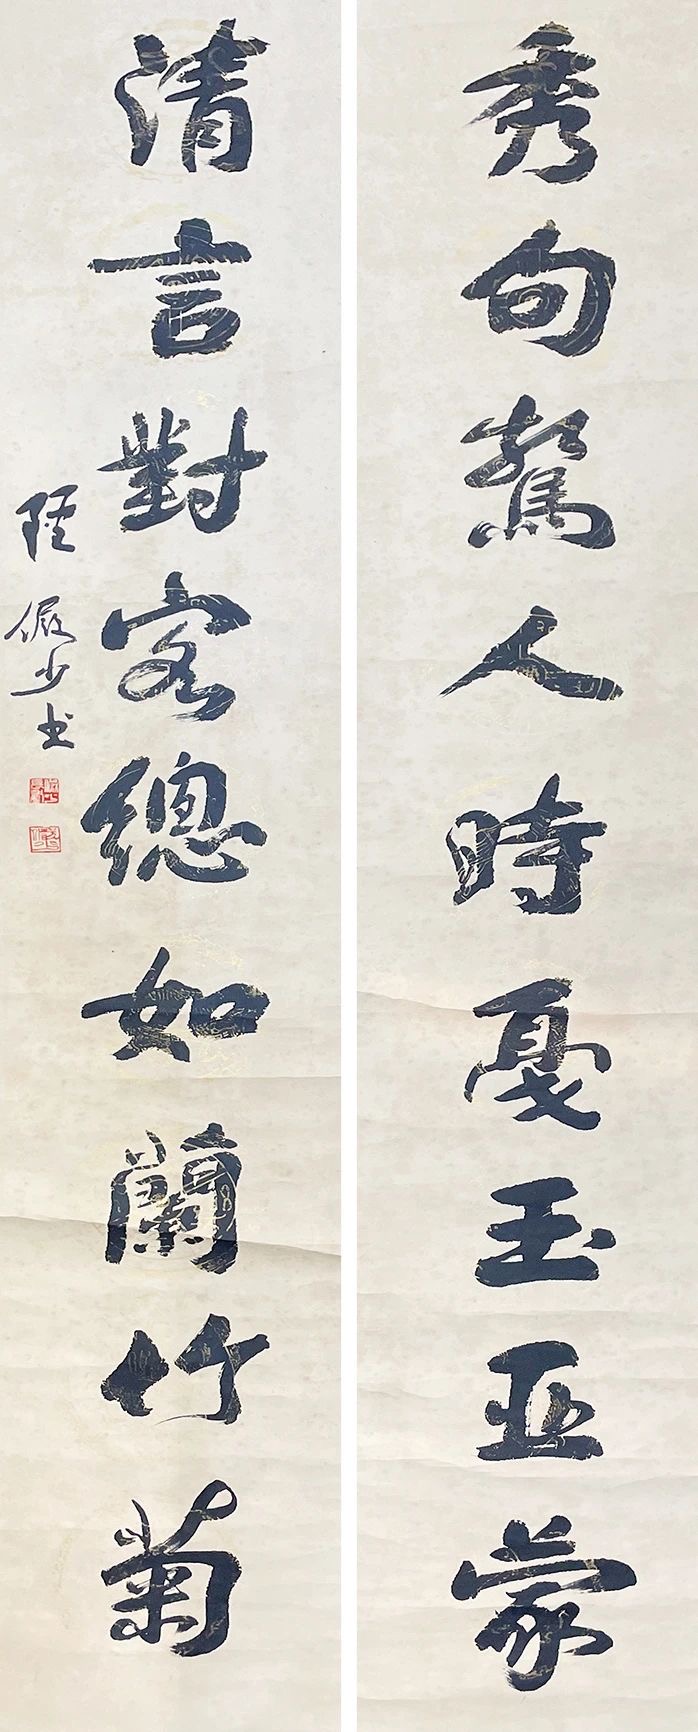 秀句驚人時戛玉亚蒙
清言對客總如蘭竹菊
陸儼少书